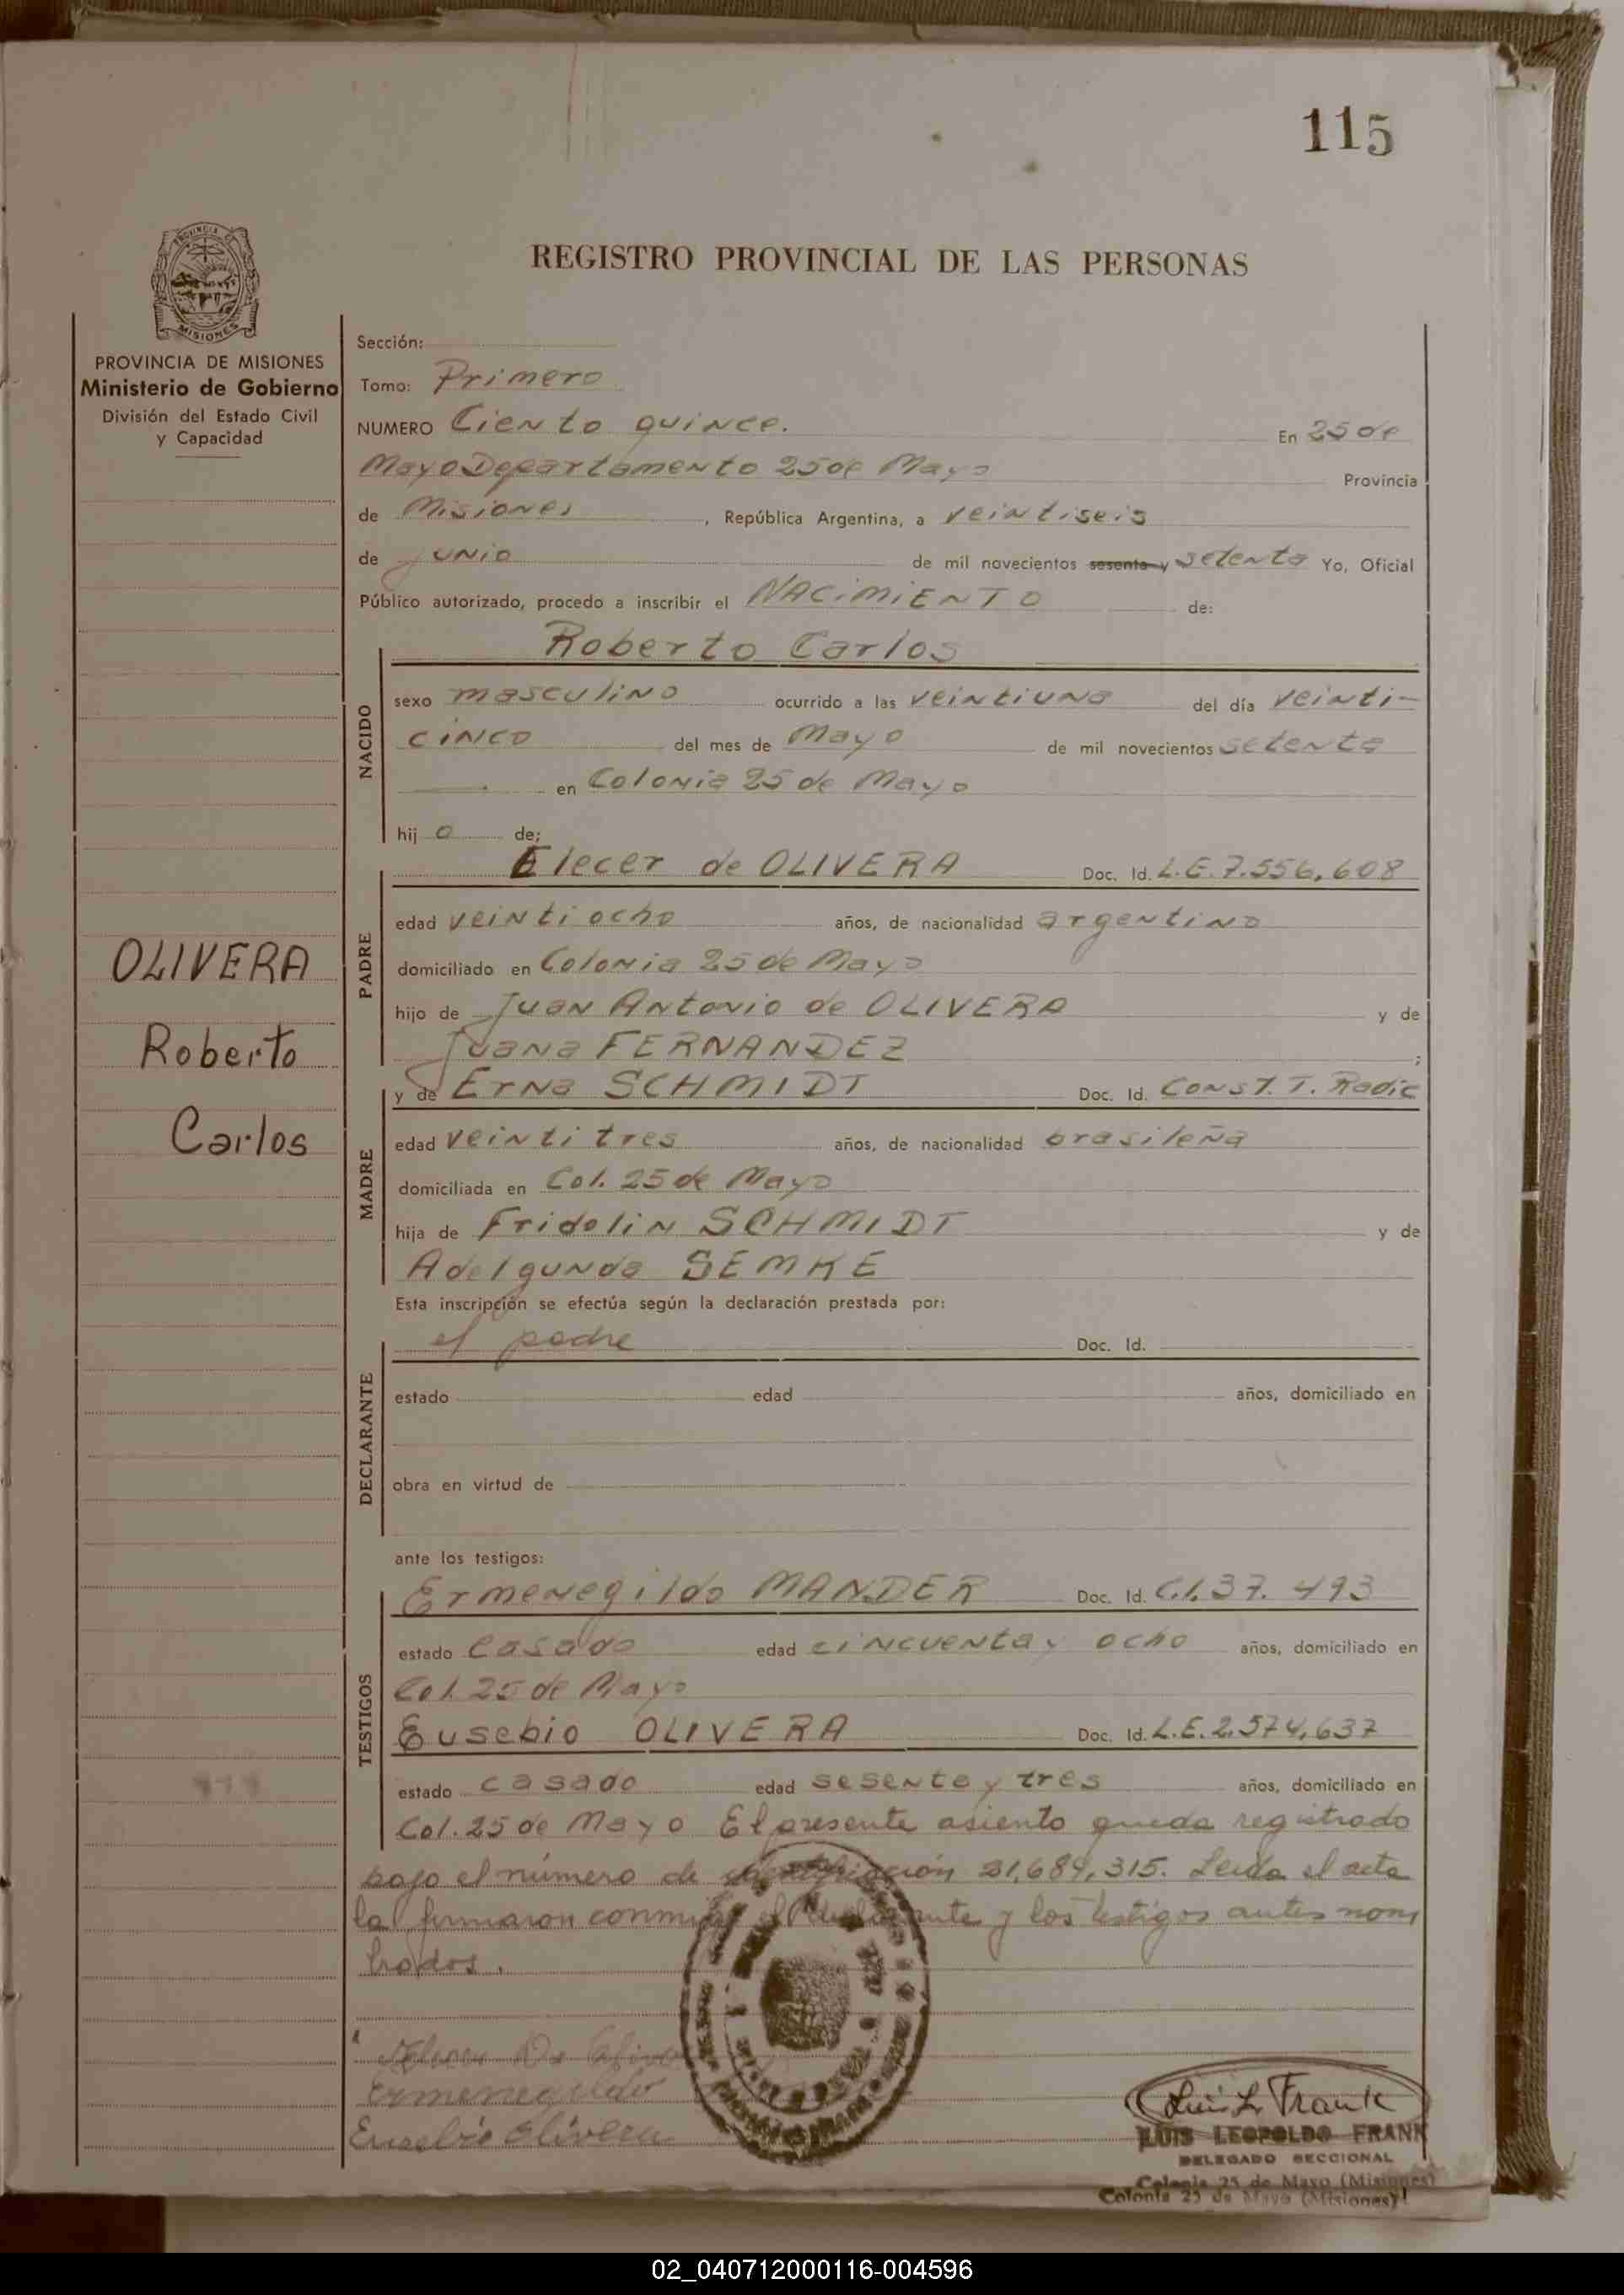 115
REGISTRO PROVINCIAL DE LAS PERSONAS
MISIONES
PROVINCIA DE MISIONES
Ministerio de Gobierno
División del Estado Civil
y Capacidad
Sección:
Tomo: Primero
NUMERO Ciento quince. En 25 de
Mayo Departamento 25 de Mayo Provincia
de Misiones, República Argentina, a veintiseis
de junio de mil novecientos sesenta y setenta Yo, Oficial
Público autorizado, procedo a inscribir el NACIMIENTO de:
Roberto Carlos
NACIDO
sexo masculino ocurrido a las veintiuna del día veinti-
cinco del mes de Mayo de mil novecientos setenta
en Colonia 25 de Mayo
hijo de;
PADRE
Elecer de OLIVERA Doc. Id. L.E. 7.556.608
edad veintiocho años, de nacionalidad argentino
domiciliado en Colonia 25 de Mayo
hijo de Juan Antonio de OLIVERA y de
Juana FERNANDEZ ;
MADRE
y de Erna SCHMIDT Doc. Id. Const. T. Radic
edad veintitres años, de nacionalidad brasileña
domiciliada en Col. 25 de Mayo
hija de Fridolin SCHMIDT y de
Adelgunda SEMKE
OLIVERA
Roberto
Carlos
Esta inscripción se efectúa según la declaración prestada por:
DECLARANTE
el padre Doc. Id.
estado edad años, domiciliado en
obra en virtud de
ante los testigos:
TESTIGOS
Ermenegildo MANDER Doc. Id. C.I. 37.493
estado casado edad cincuenta y ocho años, domiciliado en
Col. 25 de Mayo
Eusebio OLIVERA Doc. Id. L.E. 2.574.637
estado casado edad sesenta y tres años, domiciliado en
Col. 25 de Mayo El presente asiento queda registrado
bajo el número de 21,684,315. Leida el acta
la firmaron conmigo el y los testigos antes nom
brados.
Ermenegildo
Eusebio Olivera
Luis L. Frank
LUIS LEOPOLDO FRANK
DELEGADO SECCIONAL
Colonia 25 de Mayo (Misiones)
Colonia 25 de Mayo (Misiones)
02_040712000116-004596